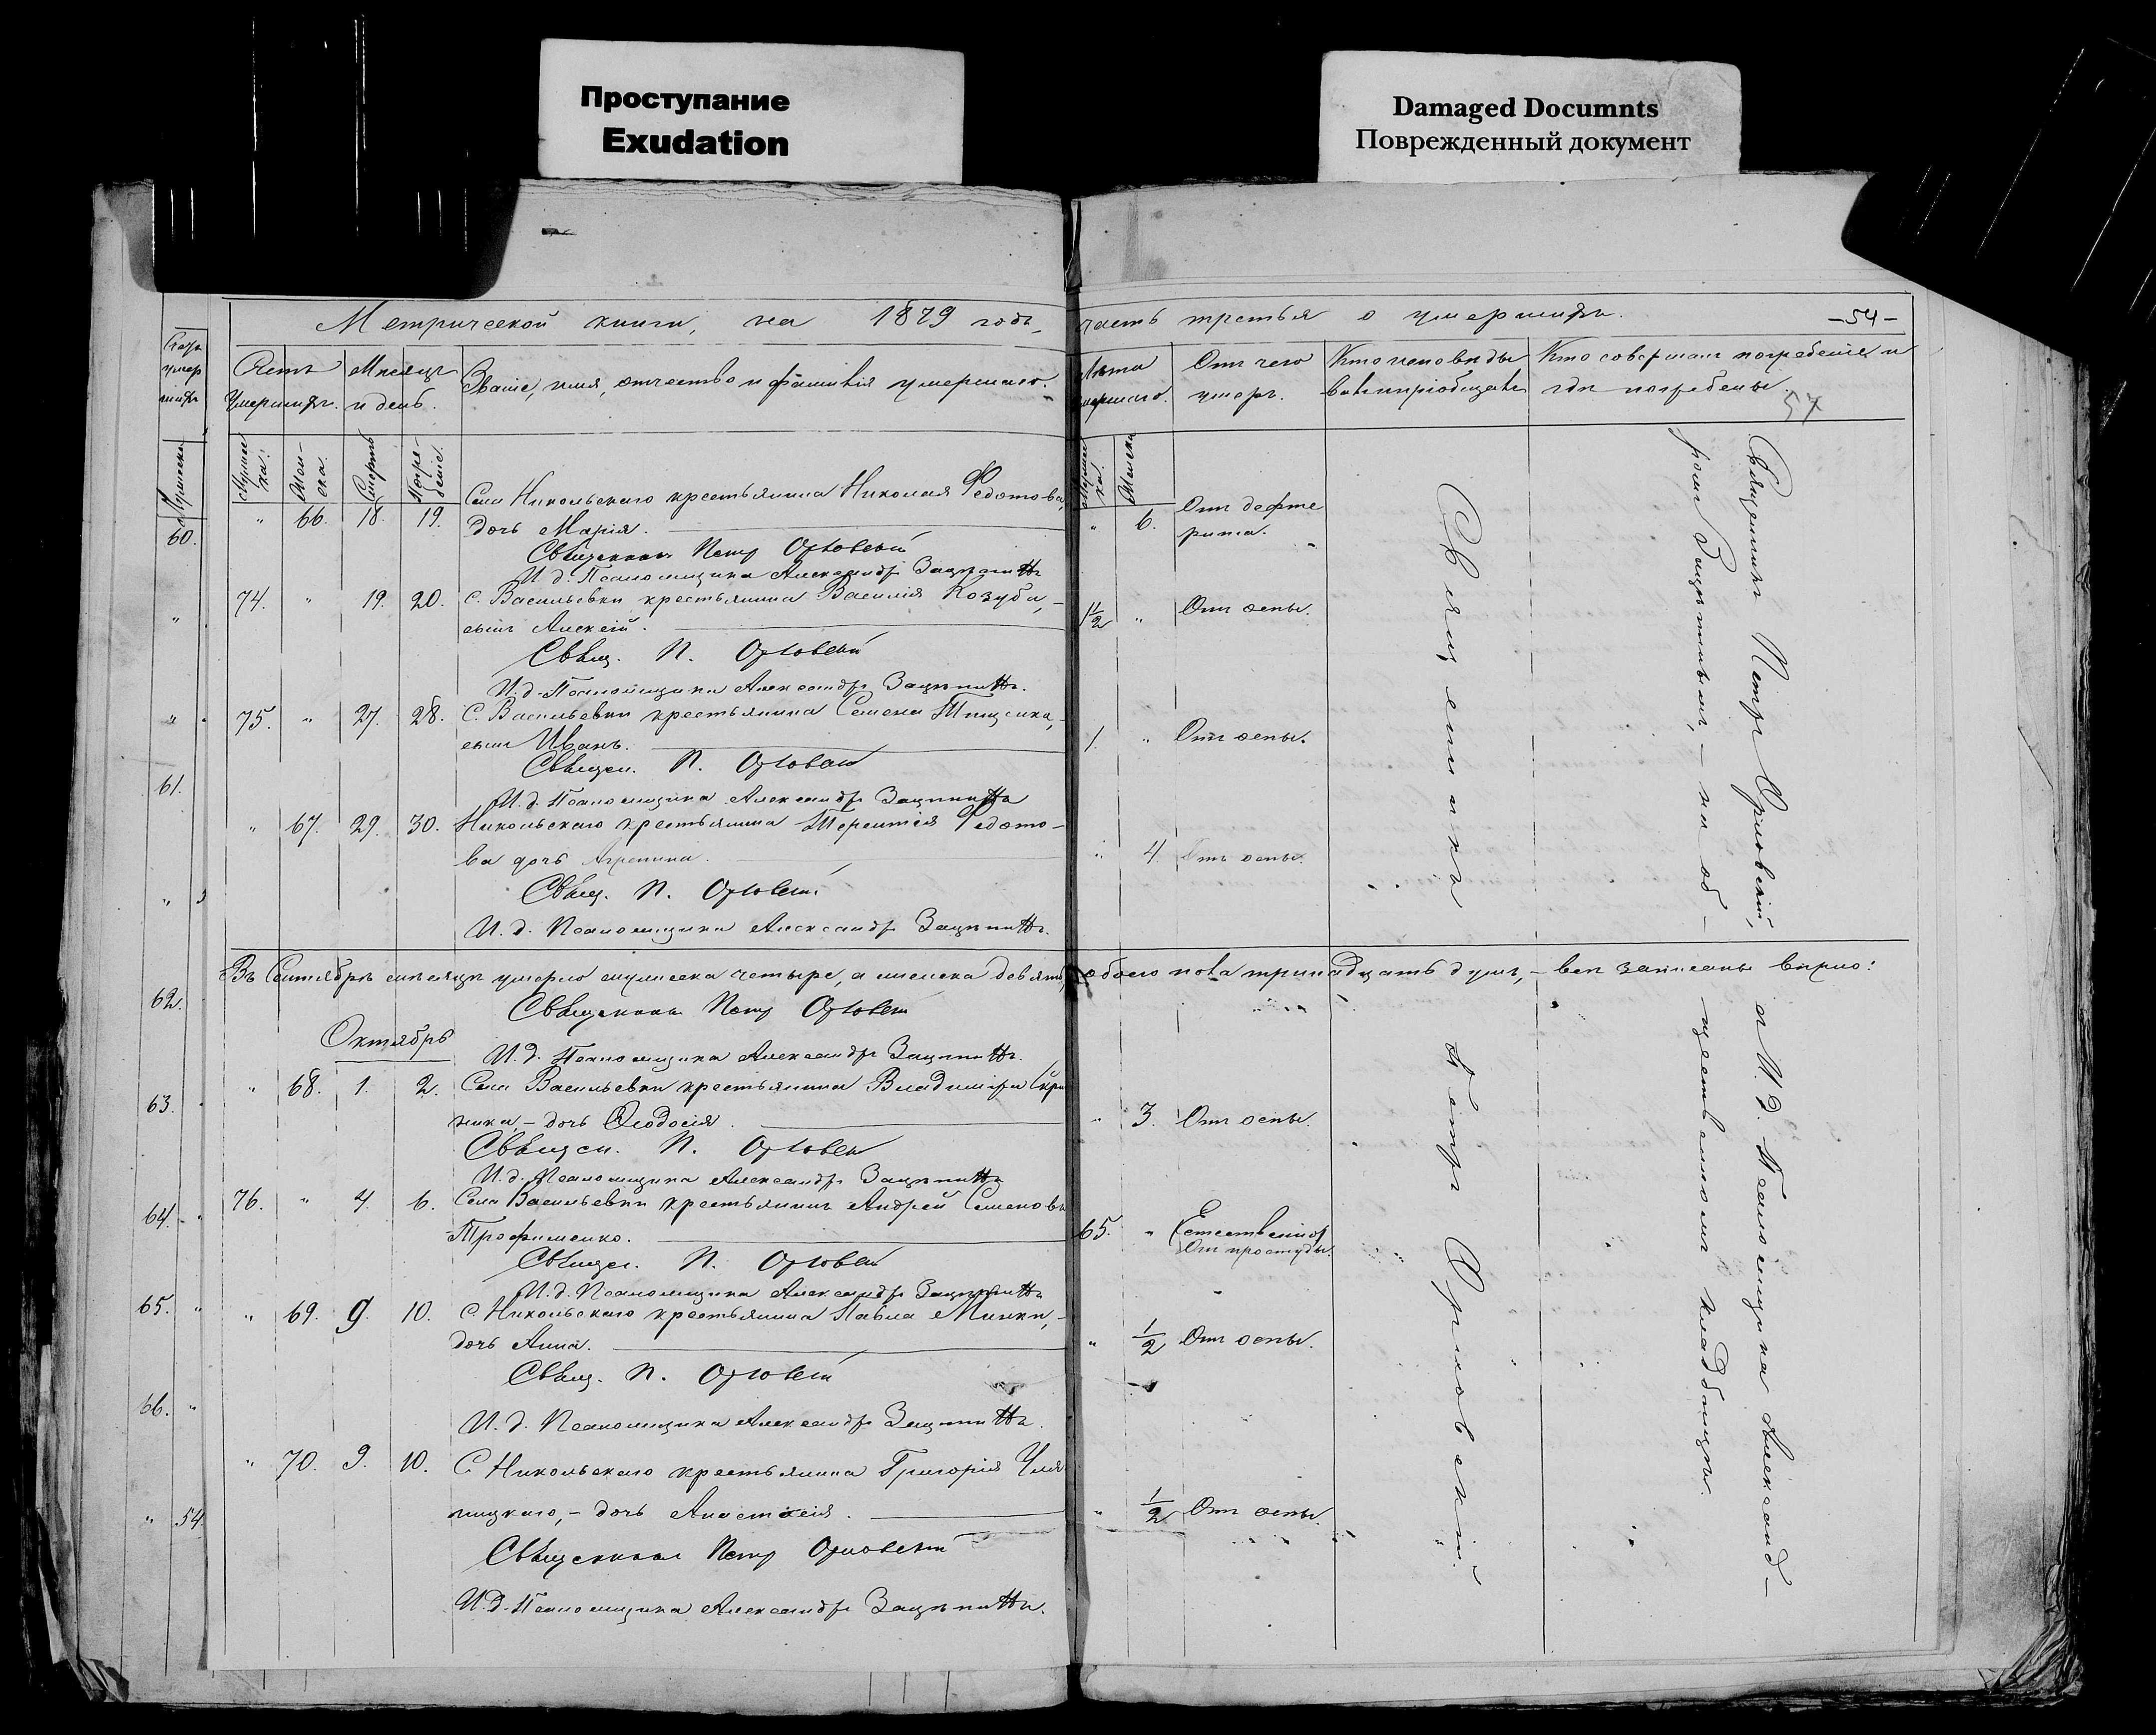 Проступание
Exudation
Damaged Documnts
Поврежденный документ
Метрической книги, на 1879 годъ,
часть третья о умершихъ.
-54-
57
Счетъ умершихъ.
Мѣсяцъ и день.
Званіе, имя, отчество и фамилія умершаго.
Лѣта умершаго.
Отъ чего умеръ.
Кто исповѣды
валъ и пріобщалъ
Кто совершалъ погребеніе и
гдѣ погребены
Мужеска.
Женска.
Смерть
Погребеніе.
Мужеска.
Женска
" 66. 18. 19. Села Никольскаго крестьянина Николая Федотова,
дочь Марія. " 6. Отъ дефте
рита.
Священникъ Петръ Орловскій
И. д. Псаломщика Александръ Зацѣпинъ
74. " 19. 20. С. Васильевки крестьянина Василія Козуба,
сынъ Алексій. 1 1/2 " Отъ оспы.
Свящ. П. Орловскій
И. д. Псаломщика Александръ Зацѣпинъ.
75. " 27. 28. С. Васильевки крестьянина Семена
сынъ Иванъ. 1. " Отъ оспы.
Священ. П. Орловскій
И. д. Псаломщика Александръ Зацѣпинъ
" 67. 29. 30. Никольскаго крестьянина Терентія Федото-
ва дочь Агрепина. " 4 Отъ оспы.
Свящ. П. Орловскій
И. д. Псаломщика Александръ Зацѣпинъ.
Въ Сентябрѣ мѣсяцѣ умерло мужеска четыре, а женска девять, обоего пола тринадцать душъ, - всѣ записаны вѣрно:
Священникъ Петръ Орловскій
И. д. Псаломщика Александръ Зацѣпинъ.
Октябрь
" 68. 1. 2. Села Васильевки крестьянина Владиміра Скри
ника, - дочь Ѳеодосія. " 3. Отъ оспы.
Священ. П. Орловскій
И. д. Псаломщика Александръ Зацѣпинъ
76. " 4. 6. Села Васильевки крестьянинъ Андрей Семеновъ
Трофименко. 65. " Естественно
Отъ простуды.
Священ. П. Орловскій
И. д. Псаломщика Александръ Зацѣпинъ
" 69. 9. 10. С. Никольскаго крестьянина Павла Минки, -
дочь Анна. " 1/2 Отъ оспы.
Свящ. П. Орловскій
И. д. Псаломщика Александръ Зацѣпинъ.
" 70. 9. 10. С. Никольскаго крестьянина Григорія
дочь Анастасія. " 1/2 Отъ оспы.
Священникъ Петръ Орловскій
И. Д. Псаломщика Александръ Зацѣпинъ.
Священникъ Петръ Орловскій.
Священникъ Петръ Орловскій,
и И. д. Псаломщика Александ-
ромъ Зацѣпинымъ, - на об-
щественномъ кладбищѣ.
Мужеска
60.
61.
62.
63.
64.
65.
66.
54